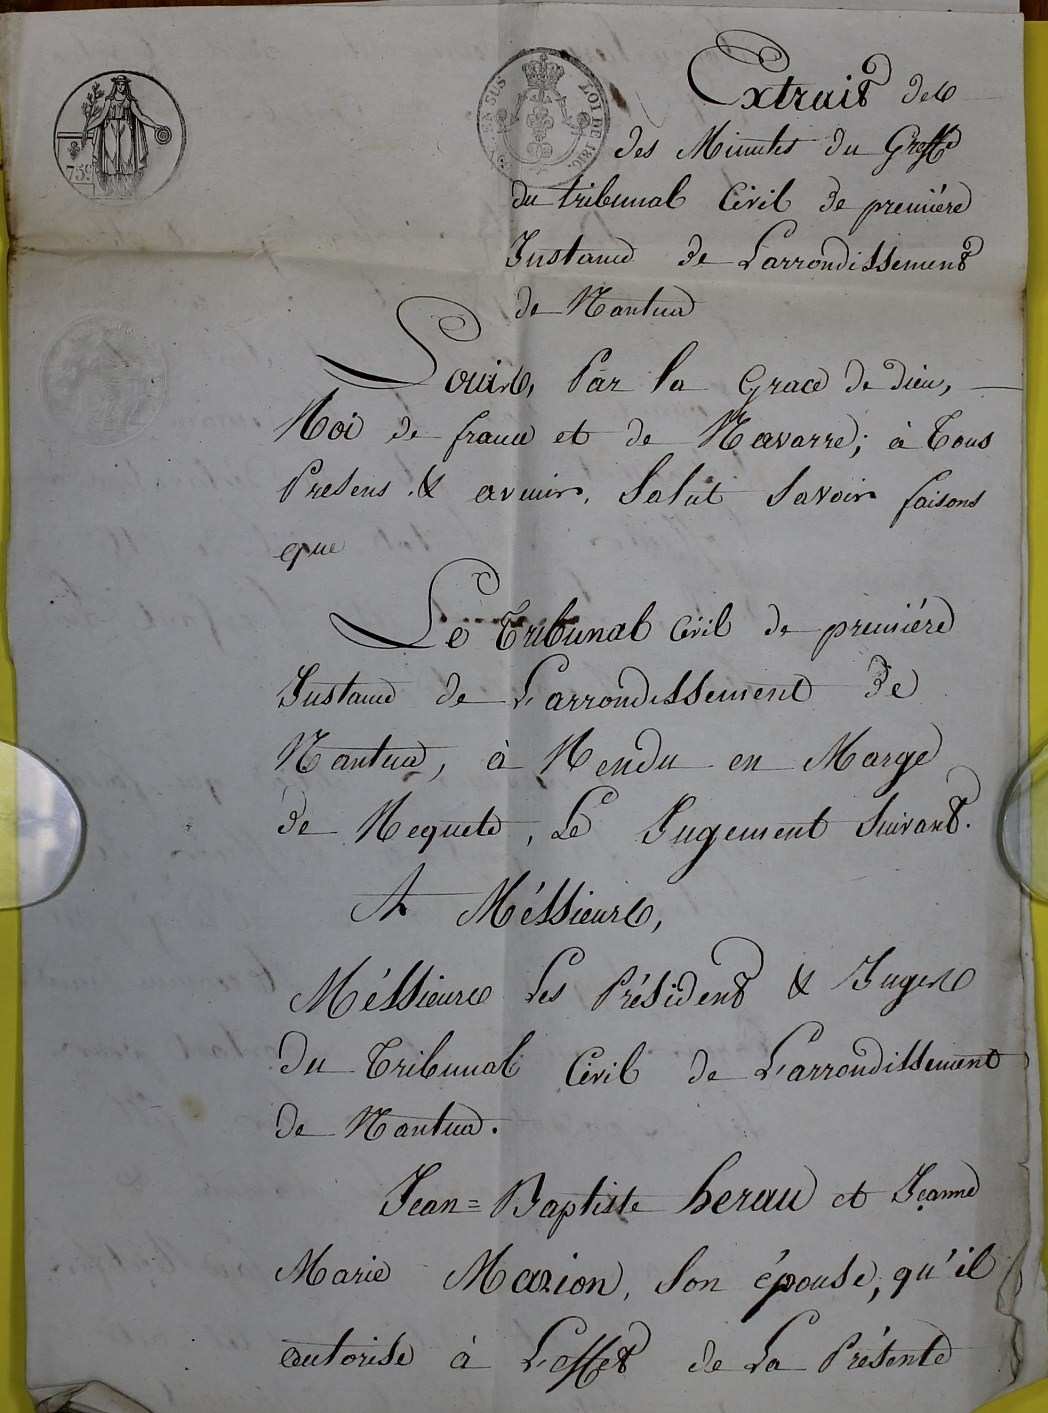 759
EN SUS
LOI DE 1816.
Extrait des
des Minutes du Greffe
du tribunal Civil de premiére
Instance de L'arrondissement
de Nantua
Louis, Par la Grace de dieu,
Roi de france et de Navarre; à Tous
Presens & avenir, Salut Savoir faisons
que
Le Tribunal Civil de premiére
Instance de L'arrondissement de
Nantua, à Rendu en Marge
de Requete, Le Jugement Suivant.
A Méssieurs,
Méssieurs Les Président & Juges
du Tribunal Civil de L'arrondissement
de Nantua.
Jean=Baptiste herau et Jeanne
Marie Marion, Son épouse, qu'il
autorise à L'effet de La Présente